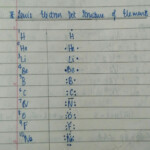 Lewis Electron Dot Structure of Elements
H H
He •He•
Li Li•
Be •Be•
B
C
N
O
F :F:
Ne :Ne: